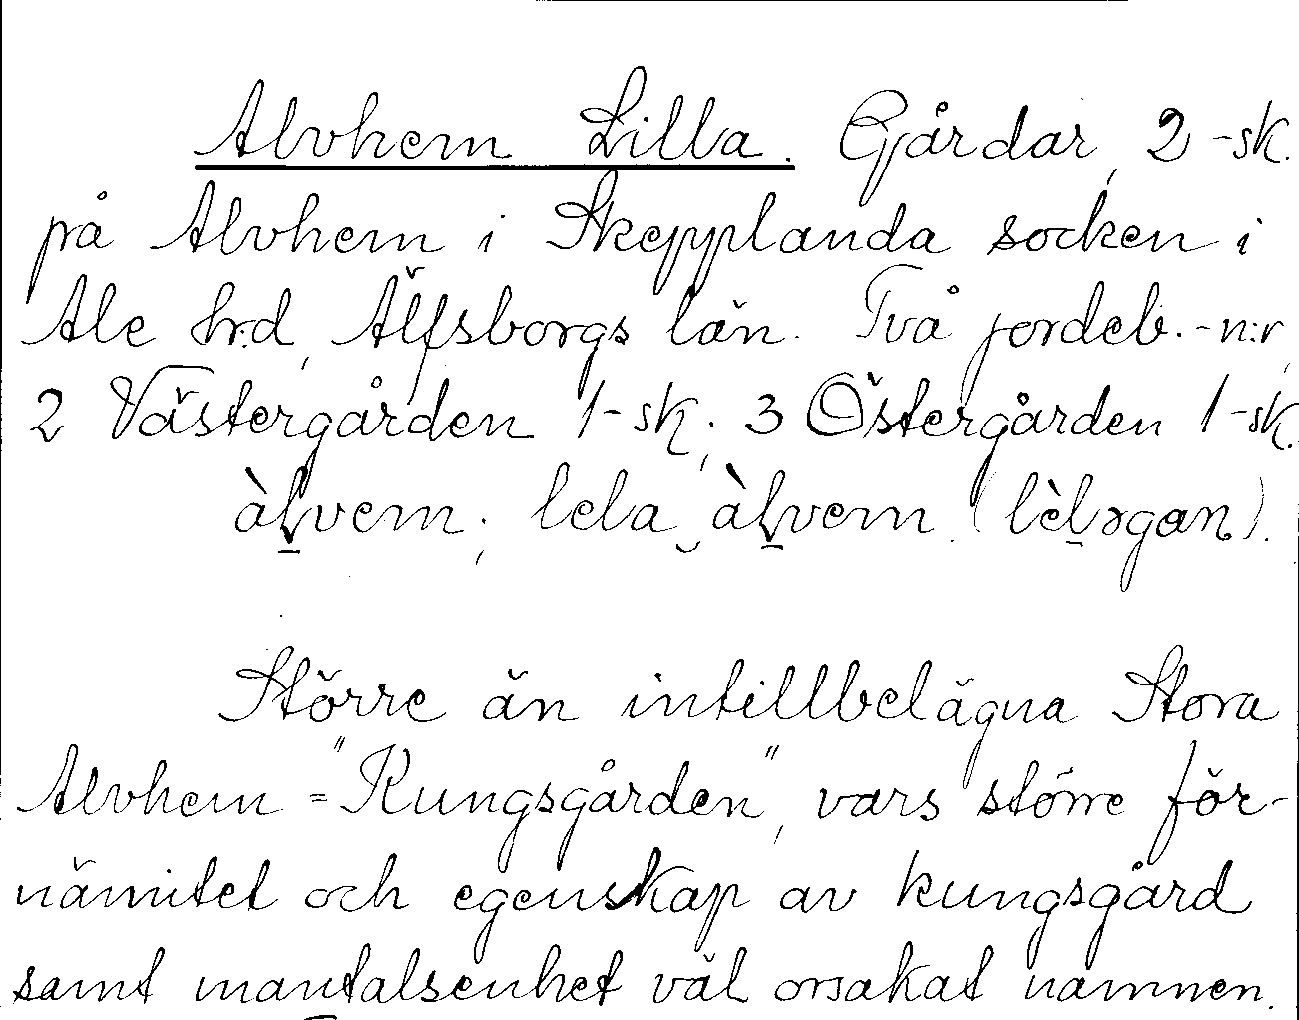 Alvhem Lilla. Gårdar, 2-sk.
på Alvhem i Skepplanda socken i
Ale hrd, Älfsborgs län. Två jordeb.-n:r,
2 Västergården 1-sk.; 3 Östergården 1-sk.
àḻvem; lela‿àḻvem. (lèḻɔgan).
Större än intillbelägna Stora
Alvhem = "Kungsgården", vars större för-
nämitet och egenskap av kungsgård
samt mantalsenhet väl orsakat namnen.